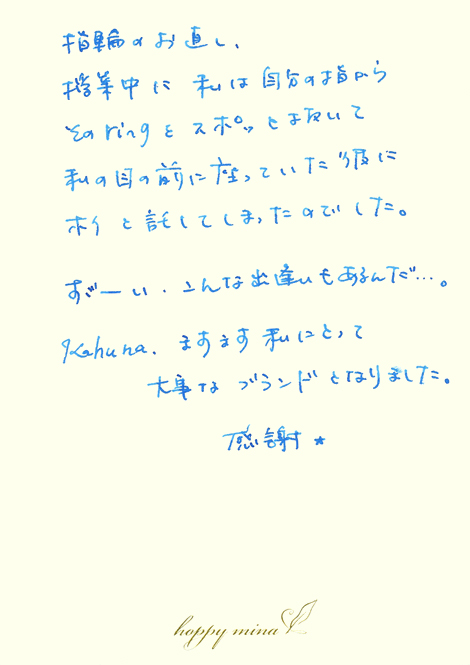 指輪のお直し、
授業中に 私は自分の指から
そのringをスポッとは抜いて
私の目の前に座っていた彼に
ホイと託してしまったのでした。
すごーい.こんな出逢いもあるんだ…。
Kahuna. ますます私にとって
大事なブランドとなりました。
感謝★
happy mina